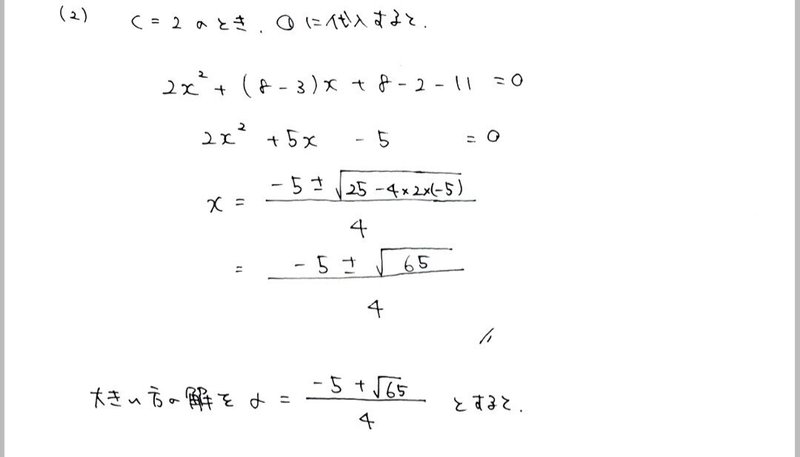 (2) C = 2 のとき. ①に代入すると.
2x² + (8 - 3)x + 8 - 2 - 11 = 0
2x² + 5x - 5 = 0
x = (-5 ± √(25 - 4×2×(-5))) / 4
= (-5 ± √65) / 4
//
大きい方の解を α = (-5 + √65) / 4 とすると.